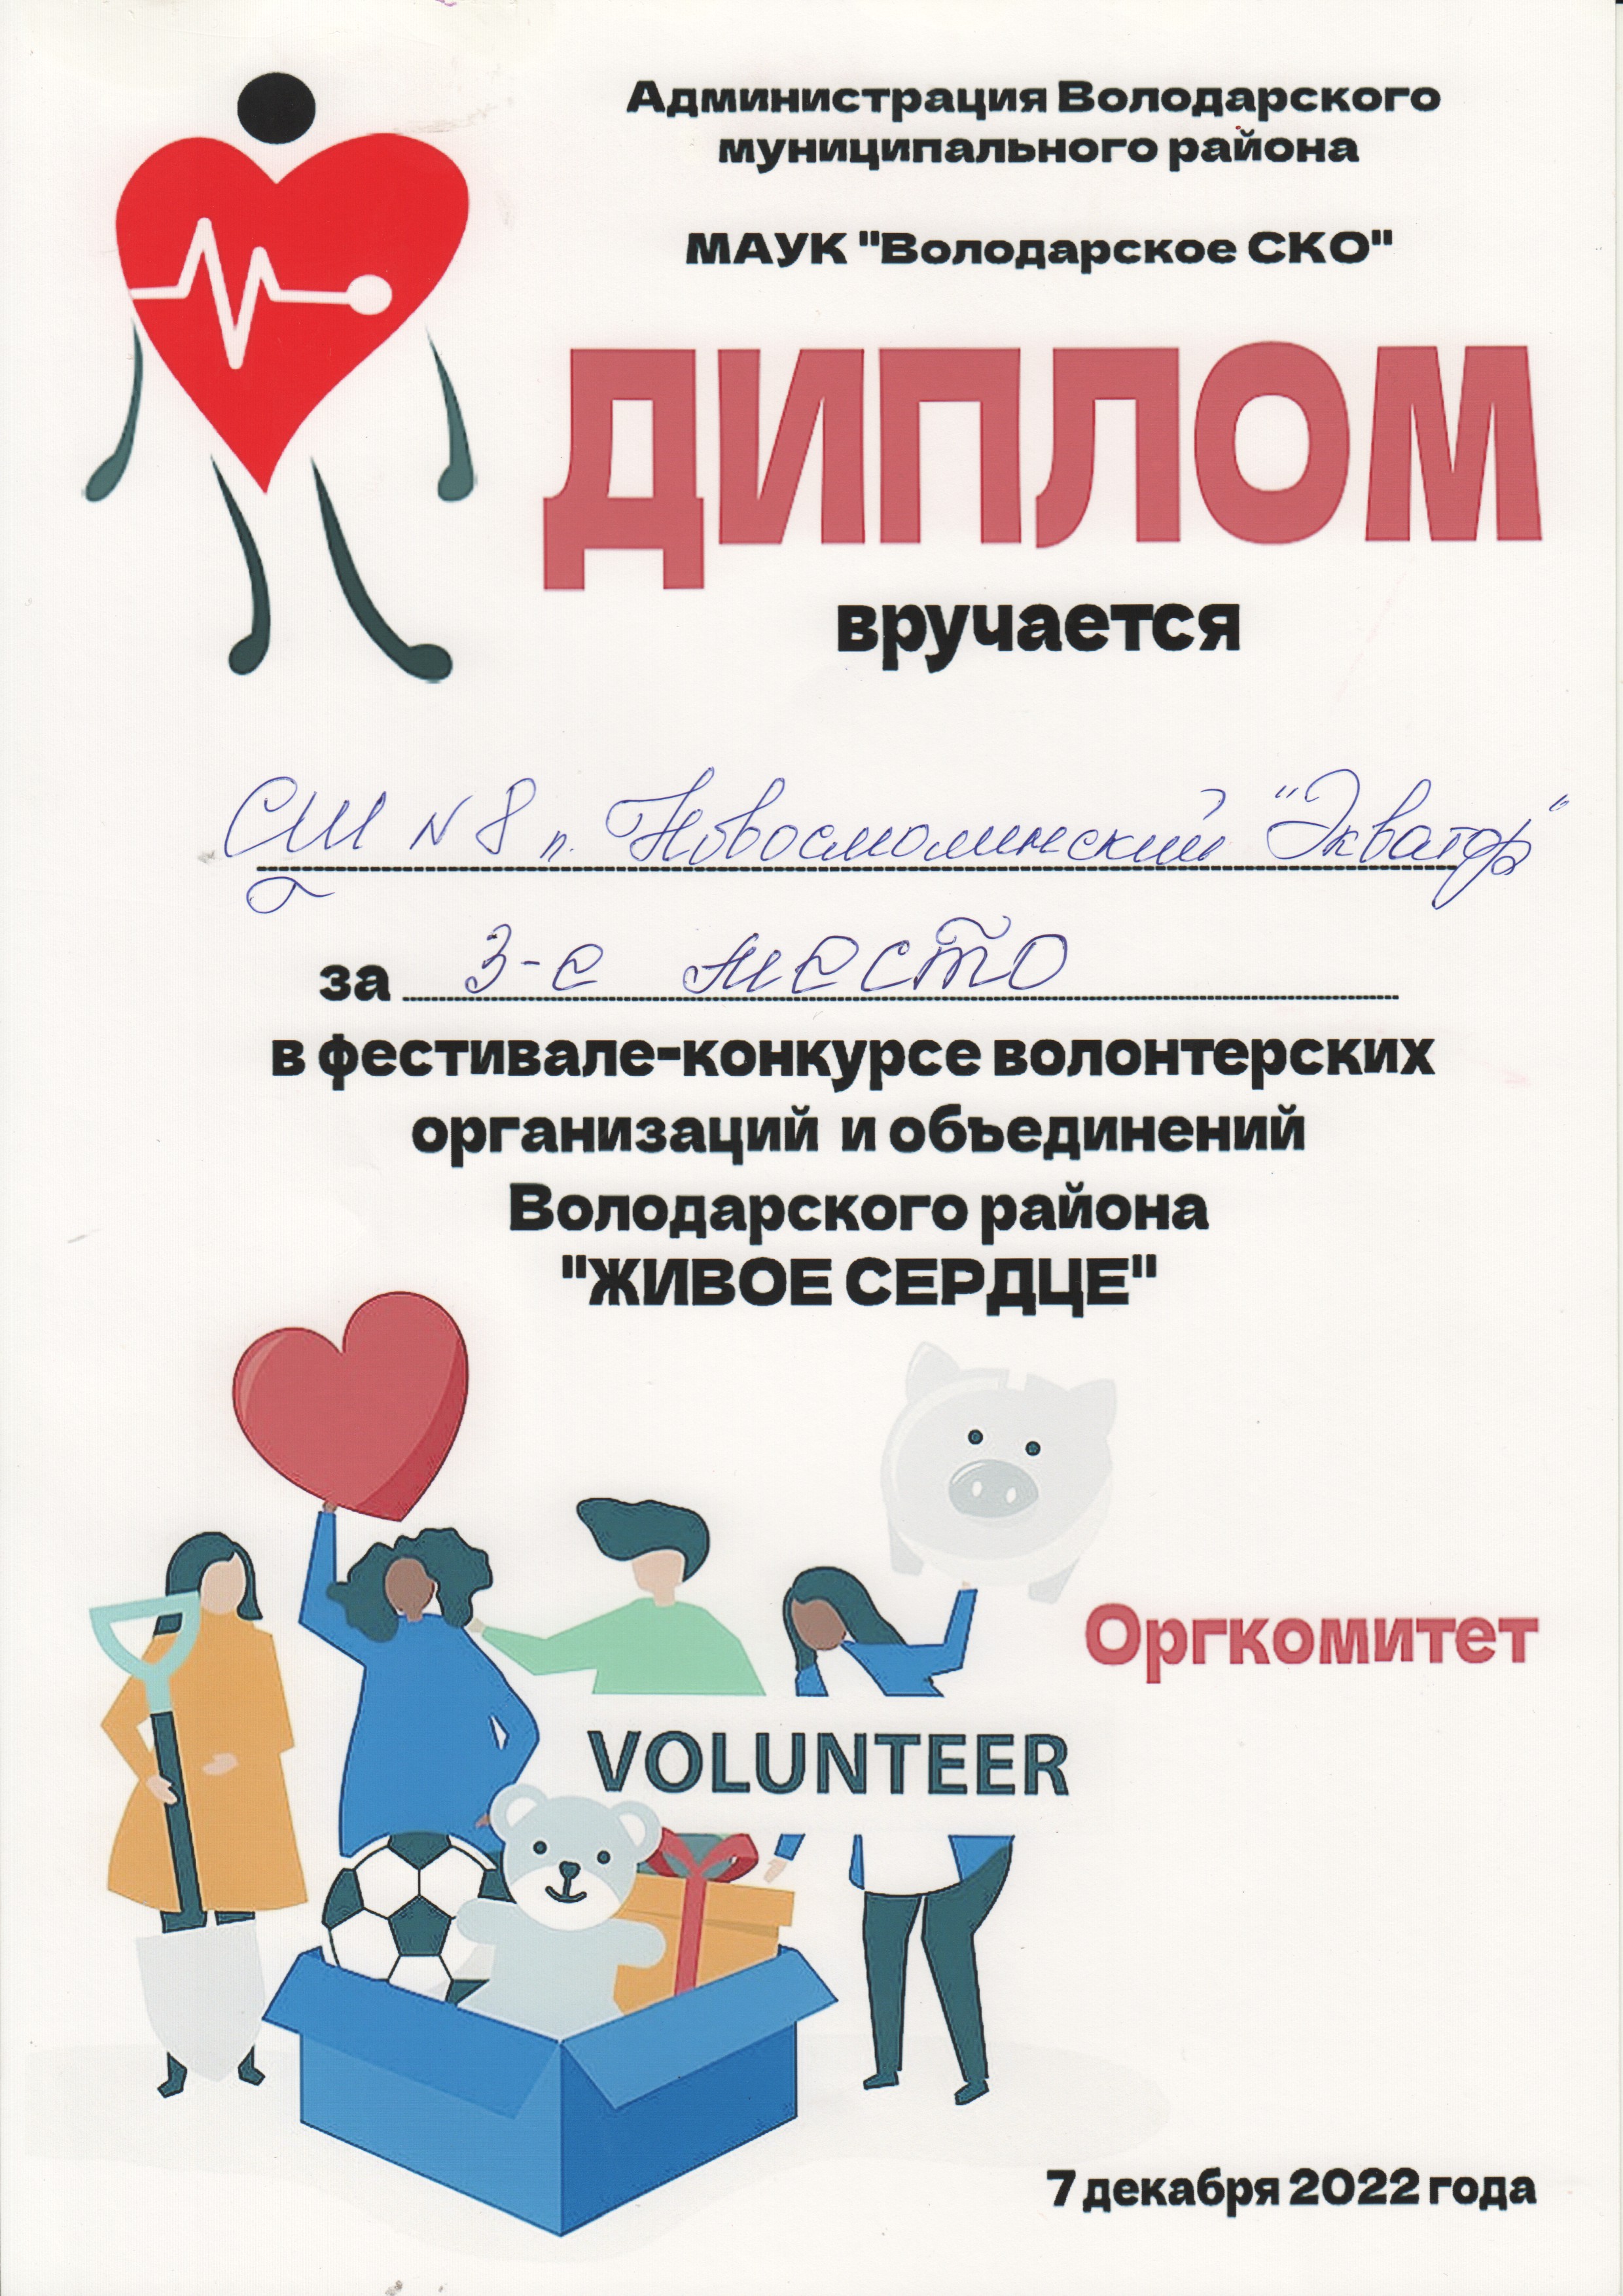 Администрация Володарского
муниципального района
МАУК "Володарское СКО"
ДИПЛОМ
вручается
СШ N 8 п. Новосмолинский "Экватор"
за 3-е место
в фестивале-конкурсе волонтерских
организаций и объединений
Володарского района
"ЖИВОЕ СЕРДЦЕ"
Оргкомитет
VOLUNTEER
7 декабря 2022 года